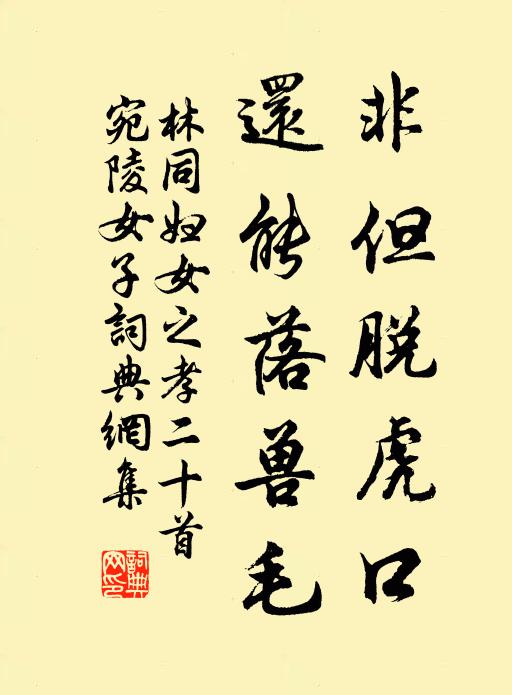 非但脱虎口
還能落兽毛
林同妇女之孝二十首
宛陵女子詞典網集
詞典网印